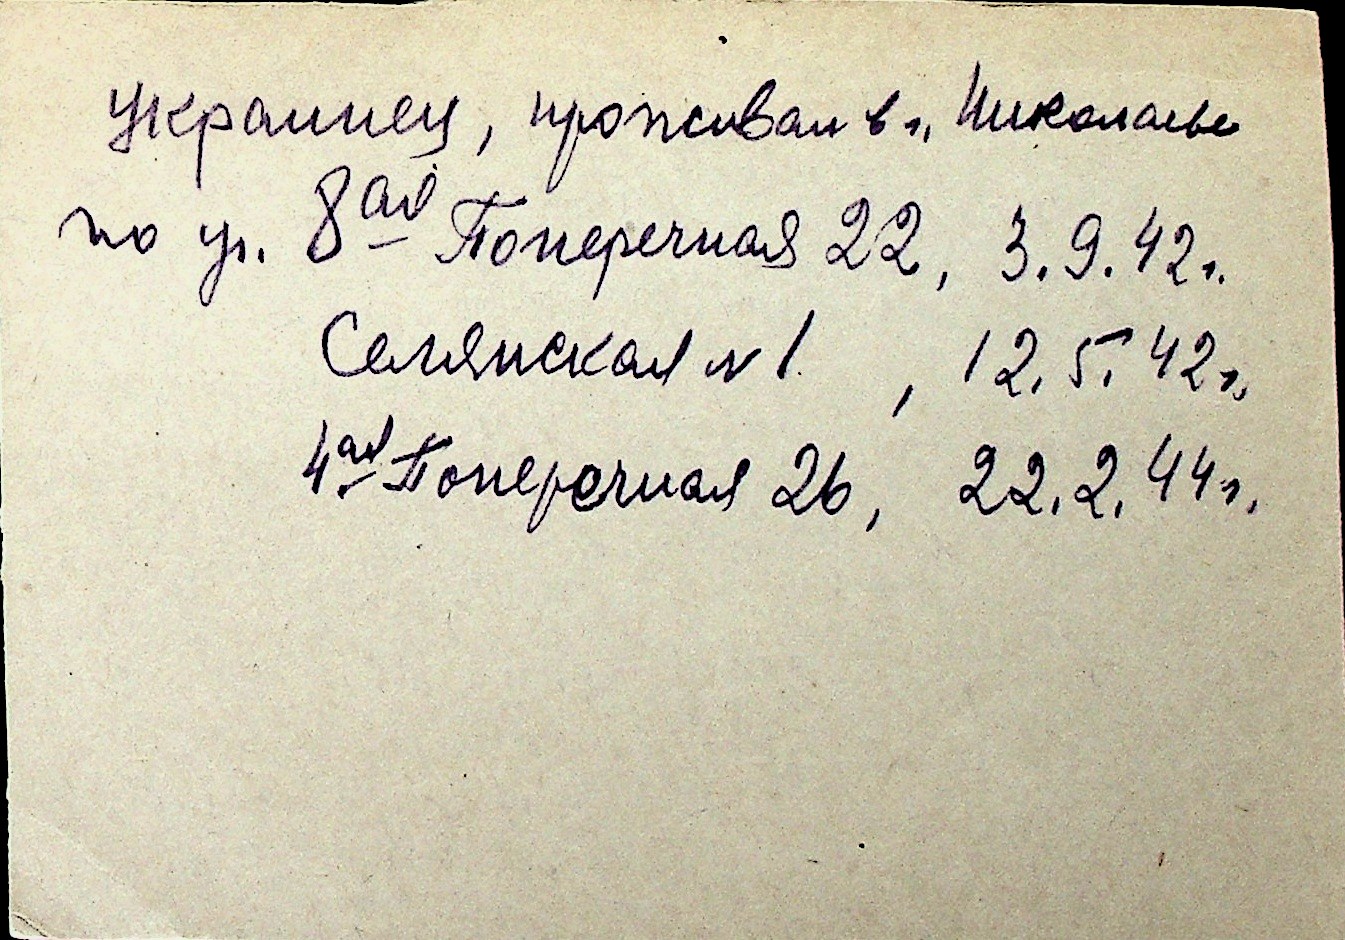 Украинец, проживал в г. Николаеве
по ул. 8ая Поперечная 22, 3.9.42г.
Селянская N 1, 12.5.42г.
4ая Поперечная 26, 22.2.44г.